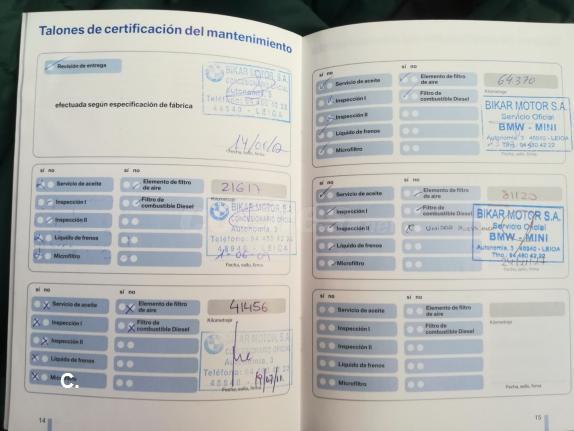 Talones de certificación del mantenimiento
Revisión de entrega
efectuada según especificación de fábrica
BIKAR MOTOR, S.A.
CONCESIONARIO OFICIAL
Autonomía, 3
Teléfono: 94 480 42 22
48940 - LEIOA
Fecha, sello, firma
sí no
sí no
Servicio de aceite
Elemento de filtro
de aire
21617
Inspección I
Filtro de
combustible Diesel
Kilometraje
BIKAR MOTOR, S.A.
CONCESIONARIO OFICIAL
Autonomía, 3
Inspección II
Líquido de frenos
Teléfono: 94 480 42 22
48940 - LEIOA
Microfiltro
Fecha, sello, firma
sí no
sí no
Servicio de aceite
Elemento de filtro
de aire
41456
Inspección I
Filtro de
combustible Diesel
Kilometraje
Inspección II
BIKAR MOTOR, S.A.
CONCESIONARIO OFICIAL
Autonomía, 3
Líquido de frenos
48940
19/07/11
C.
Fecha, sello, firma
14
sí no
sí no
Servicio de aceite
Elemento de filtro
de aire
64370
Inspección I
Filtro de
combustible Diesel
Kilometraje
Inspección II
BIKAR MOTOR S.A.
Servicio Oficial
BMW - MINI
Líquido de frenos
Autonomía, 3 - 48940 - LEIOA
Tfno.: 94 480 42 22
Microfiltro
Fecha, sello, firma
sí no
sí no
Servicio de aceite
Elemento de filtro
de aire
81120
Inspección I
Filtro de
combustible Diesel
Inspección II
BIKAR MOTOR S.A.
Servicio Oficial
BMW - MINI
Líquido de frenos
Autonomía, 3 - 48940 - LEIOA
Tfno.: 94 480 42 22
Microfiltro
Fecha, sello, firma
sí no
sí no
Servicio de aceite
Elemento de filtro
de aire
Inspección I
Filtro de
combustible Diesel
Kilometraje
Inspección II
Líquido de frenos
Microfiltro
Fecha, sello, firma
15